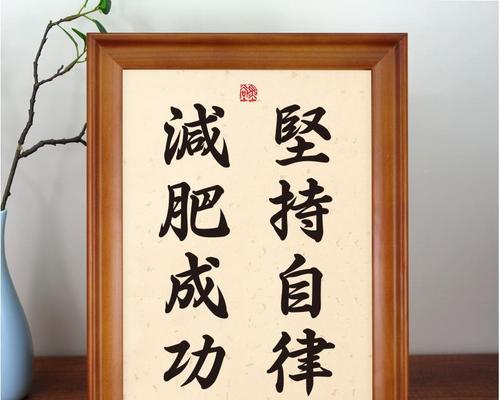 堅持自律
減肥成功